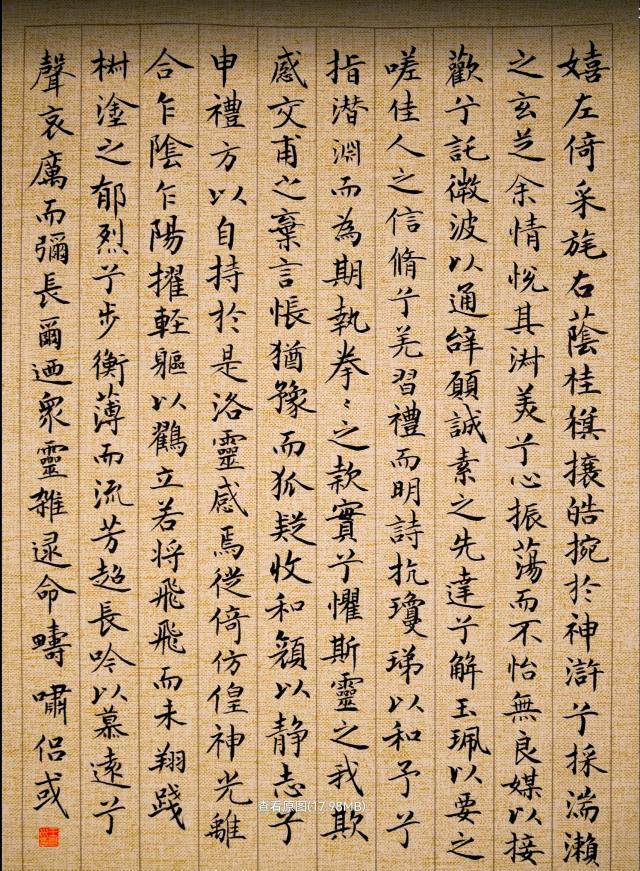 嬉左倚采旄右蔭桂旗攘皓捥於神滸兮採湍瀨
之玄芝余情悅其淑美兮心振蕩而不怡無良媒以接
歡兮託微波以通辭願誠素之先達兮解玉珮以要之
嗟佳人之信脩兮羌習禮而明詩抗瓊珶以和予兮
指潛淵而為期執拳〻之款實兮懼斯靈之我欺
感交甫之棄言悵猶豫而狐疑收和顏以静志兮
申禮方以自持於是洛靈感焉從倚仿偟神光離
合乍陰乍陽擢輕軀以鸖立若将飛飛而未翔踐
樹塗之郁烈兮步衡薄而流芳超長吟以慕遠兮
聲哀厲而彌長爾迺衆靈雜逯命疇嘯侣或
查看原图(17.98MB)